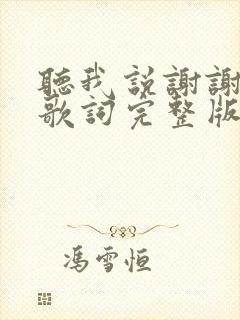 聽我説謝謝
歌詞完整版
馮雪恒